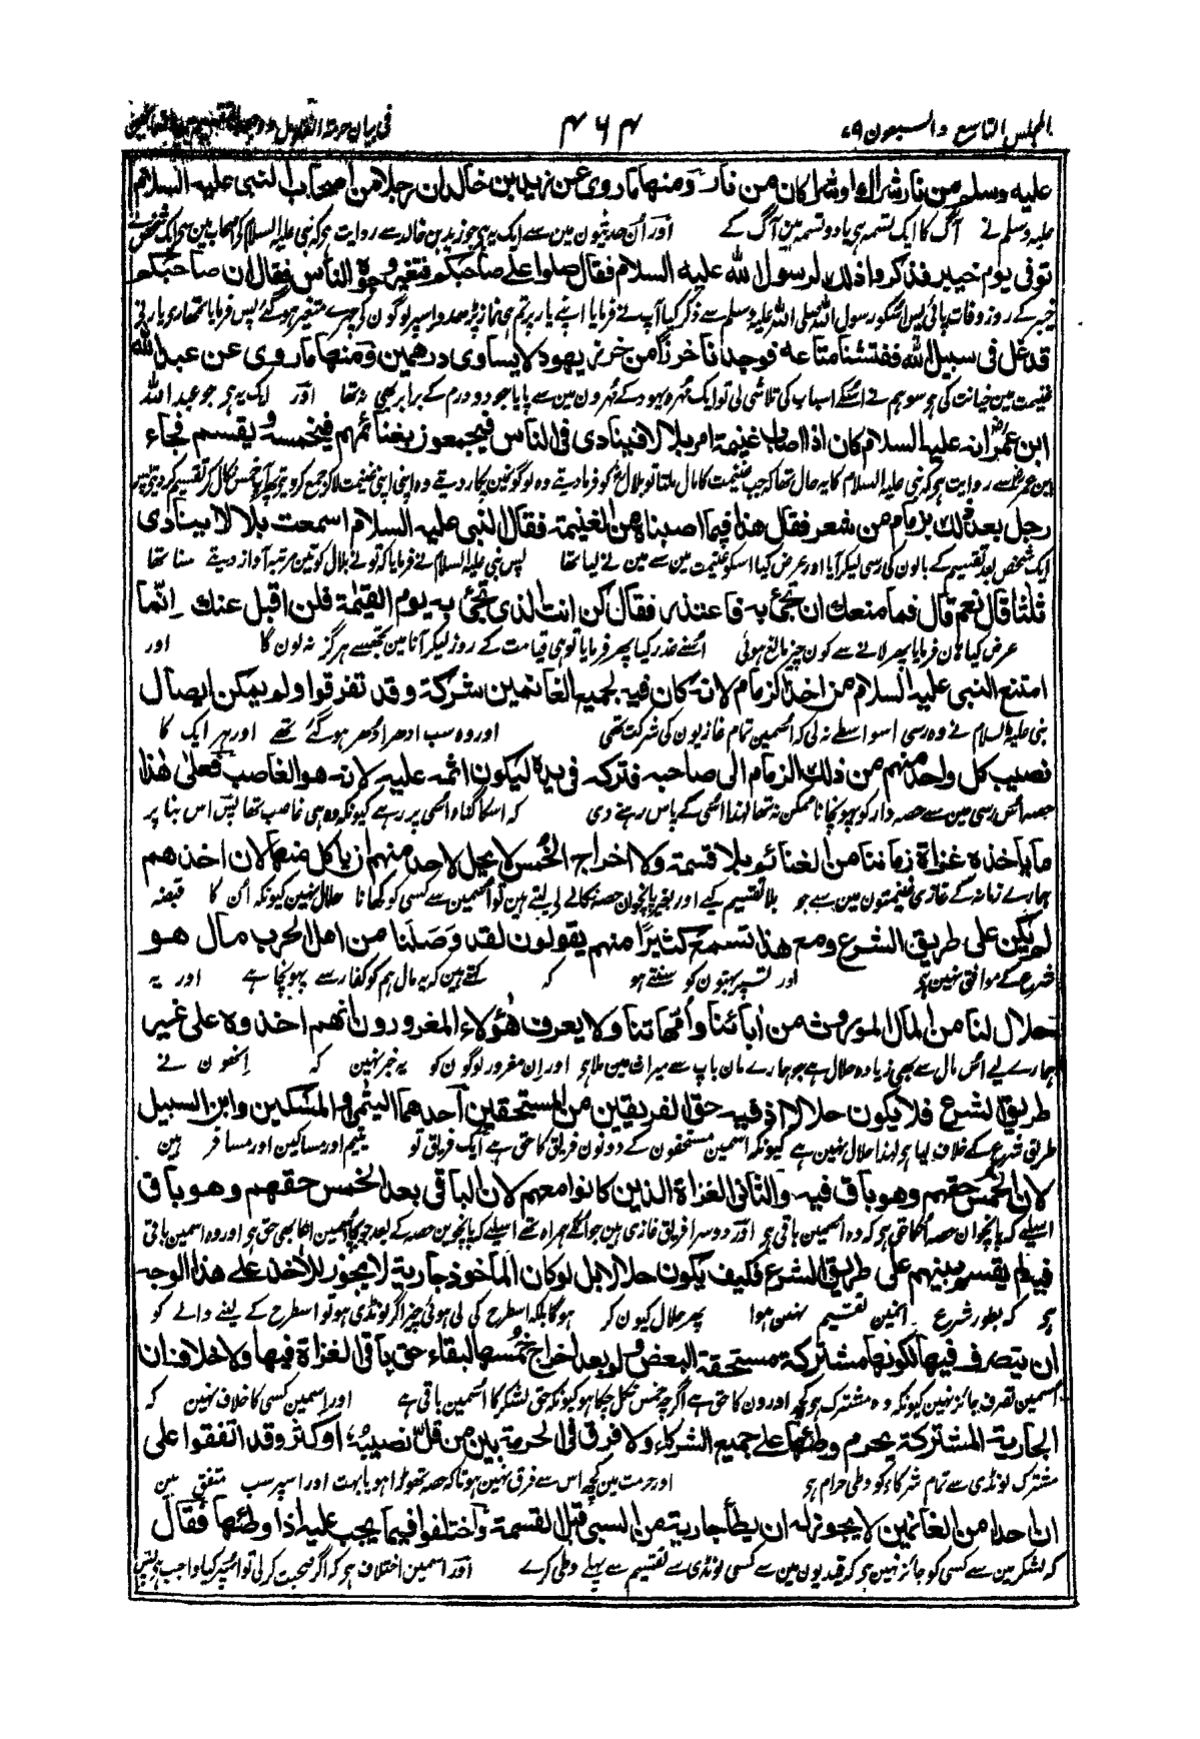 المجلس التاسع والسبعون ۷۹
۴۶۴
فی بیان حرمة الغلول و
علیه وسلم من نار شراك او شراكان من نار ومنها ما روی عن زید بن خالد ان رجلا من اصحاب النبی علیه السلام
علیہ وسلم نے آگ کا ایک تسمہ ہے یا دو تسمہ ہین آگ کے اور اُن حدیثون مین سے ایک یہ ہے جو زید بن خالد سے روایت ہے کہ نبی علیہ السلام کے اصحاب مین سے ایک شخص نے
توفی یوم خیبر فذكروا ذلك لرسول الله علیه السلام فقال صلوا علی صاحبكم فتغیر وجوه الناس فقال ان صاحبكم
خیبر کے روز وفات پائی پس اسکو رسول اللہ صلی اللہ علیہ وسلم سے ذکر کیا آپ نے فرمایا اپنے یار پر تم ہی نماز پڑھ لو اسپر لوگون کے چہرے متغیر ہو گئے پس فرمایا تمھاری یار نے
قد غل فی سبیل الله ففتشنا متاعه فوجدنا خرزا من خرز یهود لا یساوی درهمین ومنها ما روی عن عبد الله
غنیمت مین خیانت کی ہے سو ہم نے اُسکے اسباب کی تلاشی لی تو ایک مُہرہ یہود کے مُہرون مین سے پایا جو دو درم کے برابر بھی نہ تھا اور ایک یہ ہے جو عبد اللہ
ابن عمر انه علیه السلام كان اذا اصاب غنیمة امر بلالا فینادی فی الناس فیجمعون بغنائمهم فیخمسه ویقسم فجاء
ابن عمر سے روایت ہے کہ نبی علیہ السلام کا یہ حال تھا کہ جب غنیمت کا مال ملتا تو بلال کو فرمادیتے وہ لوگون مین پکار دیتے وہ اپنی اپنی غنیمت لاکر جمع کردیتے پھر آپ خمس نکال کر تقسیم کردیتے پھر
رجل بعد ذلك بزمام من شعر فقال هذا فیما اصبناه من الغنیمة فقال النبی علیه السلام اسمعت بلالا ینادی
ایک شخص بعد تقسیم کے بالون کی رسی لیکر آیا اور عرض کیا اسکو غنیمت مین سے مین نے لیا تھا پس نبی علیہ السلام نے فرمایا کہ تو نے بلال کو تین مرتبہ آواز دیتے سنا تھا
ثلثا قال نعم قال فما منعك ان تجئ به فاعتذر فقال كن انت الذی تجئ به یوم القیمة فلن اقبل عنك انما
عرض کیا ہان فرمایا پھر لانے سے کون چیز مانع ہوئی اُسنے عذر کیا پھر فرمایا تو ہی قیامت کے روز لیکر آنا مین تجھسے ہرگز نہ لون گا اور
امتنع النبی علیه السلام من اخذ الزمام لانه كان فیه لجمیع الغانمین شركة وقد تفرقوا ولم یمكن ایصال
نبی علیہ السلام نے وہ رسی اسواسطے نہ لی کہ اُسمین تمام غازیون کی شرکت تھی اور وہ سب ادھر اُدھر ہو گئے تھے اور ہر ایک کا
نصیب كل واحد منهم من ذلك الزمام الی صاحبه فتركه فی یده لیكون اثمه علیه لانه هو الغاصب فعلی هذا
حصہ اُس رسی مین سے حصہ دار کو پہونچانا ممکن نہ تھا لہذا اُسی کے پاس رہنے دی کہ اسکا گناہ اُسی پر رہے کیونکہ وہ ہی غاصب تھا پس اس بنا پر
ما یاخذه غزاة زماننا من الغنائم بلا قسمة ولا اخراج الخمس لا یحل لاحد منهم ان یاكل منها لان اخذهم
ہمارے زمانہ کے غازی غنیمتون مین سے جو بلا تقسیم کیے اور بغیر پانچوان حصہ نکالے لے لیتے ہین تو اُسمین سے کسی کو کھانا حلال نہین کیونکہ اُن کا قبضہ
لم یكن علی طریق الشرع ومع هذا تسمع كثیرا منهم یقولون لقد وصلنا من اهل الحرب مال هو
شرع کے موافق نہین ہے اور تسپر بہتون کو سنتے ہو کہ کہتے ہین کہ یہ مال ہم کو کفار سے پہونچا ہے اور یہ
حلال لنا من المال الموروث من ابائنا وامهاتنا ولا یعرف هؤلاء المغرورون انهم اخذوه علی غیر
ہمارے لیے اُس مال سے بھی زیادہ حلال ہے جو ہمارے مان باپ سے میراث مین ملا ہو اور اِن مغرور لوگون کو یہ خبر نہین کہ اِنھون نے
طریق الشرع فلا یكون حلالا اذ فیه حق الفریقین من المستحقین احدهما الیتمی والمسكین وابن السبیل
طریق شرع کے خلاف لیا ہے لہذا حلال نہین ہے کیونکہ اسمین مستحقون کے دونون فریق کا حق ہے ایک فریق تو یتیم اور مساکین اور مسافر ہین
لان الخمس حقهم وهو باق فیه والثانی الغزاة الذین كانوا معهم لان الباقی بعد الخمس حقهم وهو باق
اسلیے کہ پانچوان حصہ اُنکا حق ہے کہ وہ اُسمین باقی ہے اور دوسرا فریق غازی ہین جو اُنکے ہمراہ تھے اسلیے کہ پانچوین حصہ کے بعد جو بچا اُسمین اُنکا بھی حق ہے اور وہ اسمین باقی
فیه لم یقسم بینهم علی طریق الشرع فكیف یكون حلالا بل لو كان المأخوذ جاریة لا یجوز للآخذ علی هذا الوجه
ہے کہ بطور شرع انمین تقسیم نہین ہوا پھر حلال کیون کر ہوگا بلکہ اسطرح کی لی ہوئی چیز اگر لونڈی ہو تو اسطرح کے لینے والے کو
ان یتصرف فیها لكونها مشتركة مستحقة البعض ولو بعد اخراج خمسها لبقاء حق باقی الغزاة فیها ولا خلاف ان
اُسمین تصرف جائز نہین کیونکہ وہ مشترک ہے کچھ اورون کا حق ہے اگرچہ خمس نکل چکا ہو کیونکہ حق لشکر کا اُسمین باقی ہے اور اسمین کسی کا خلاف نہین کہ
الجاریة المشتركة یحرم وطئها علی جمیع الشركاء ولا فرق فی الحرمة بین من قل نصیبه او كثر وقد اتفقوا علی
مشترک لونڈی سے تمام شرکاء کو وطی حرام ہے اور حرمت مین کچھ اس سے فرق نہین ہوتا کہ حصہ تھوڑا ہو یا بہت اور اسپر سب متفق ہین
ان احدا من الغانمین لا یجوز له ان یطأ جاریة من السبی قبل القسمة واختلفوا فیما یجب علیه اذا وطئها فقال
کہ لشکر مین سے کسی کو جائز نہین ہے کہ قیدیون مین سے کسی لونڈی سے تقسیم سے پہلے وطی کرے اور اسمین اختلاف ہے کہ اگر صحبت کرلی تو اُسپر کیا واجب ہے